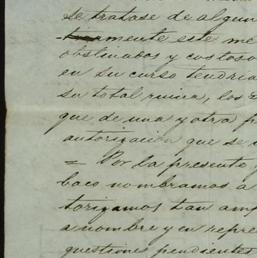 se tratase de algun
tramente este me
obstinados y costoso
en su curso tendria
su total ruina, los
que de una y otra p
autorizacion que se
= Por la presente
baco nombramos a
torizamos tan amp
a nombre y en repre
questiones pendientes